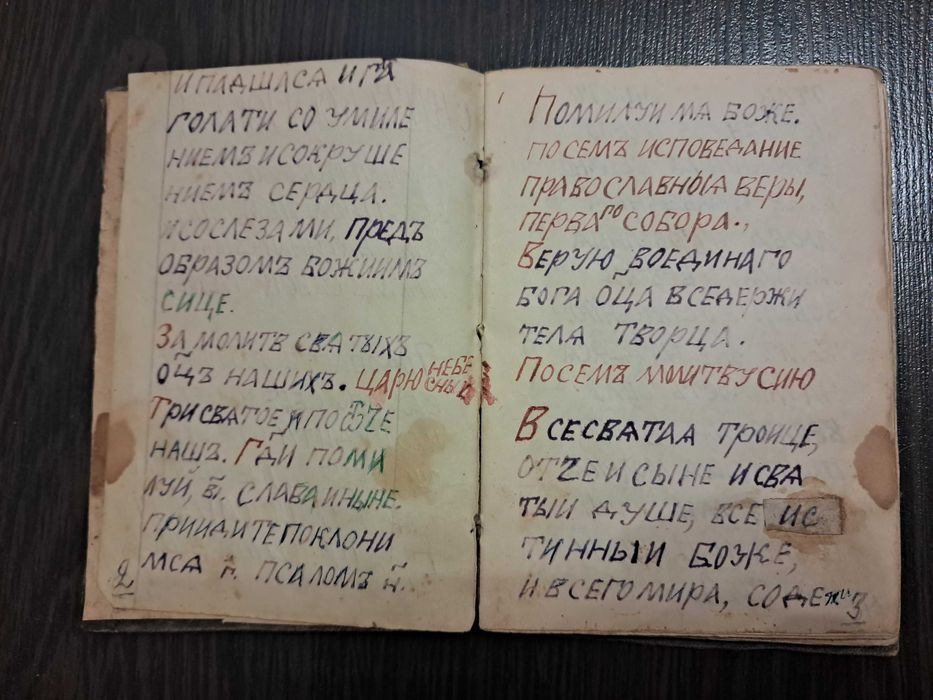 И ПЛАШАСА И ГЛА
ГОЛАТИ СО УМИЛЕ
НИЕМЪ И СОКРУШЕ
НИЕМЪ СЕРДЦА.
И СО СЛЕЗАМИ, ПРЕДЪ
ОБРАЗОМЪ БОЖИИМЪ
СИЦЕ.
ЗА МОЛИТВЪ СВАТЫХЪ
ОЦЪ НАШИХЪ. ЦАРЮ НЕБЕ
СНЫИ
ТРИСВАТОЕ, И ПО ОТЧЕ
НАШЪ. ГДИ ПОМИ
ЛУЙ, ВІ. СЛАВА И НЫНЕ.
ПРИИДИТЕ ПОКЛОНИ
МСА Г. ПСАЛОМЪ Н.
2
ПОМИЛУИ МА БОЖЕ.
ПО СЕМЪ ИСПОВЕДАНИЕ
ПРАВОСЛАВНЫА ВЕРЫ,
ПЕРВАГО СОБОРА.,
ВЕРУЮ ВОЕДИНАГО
БОГА ОЦА ВСЕДЕРЖИ
ТЕЛА ТВОРЦА.
ПОСЕМЪ МОЛИТВУ СИЮ
ВСЕСВАТАА ТРОИЦЕ,
ОТЧЕ И СЫНЕ И СВА
ТЫИ ДУШЕ, ВСЕ ИС
ТИННЫИ БОЖЕ,
И ВСЕГО МИРА, СОДЕЖИ
3